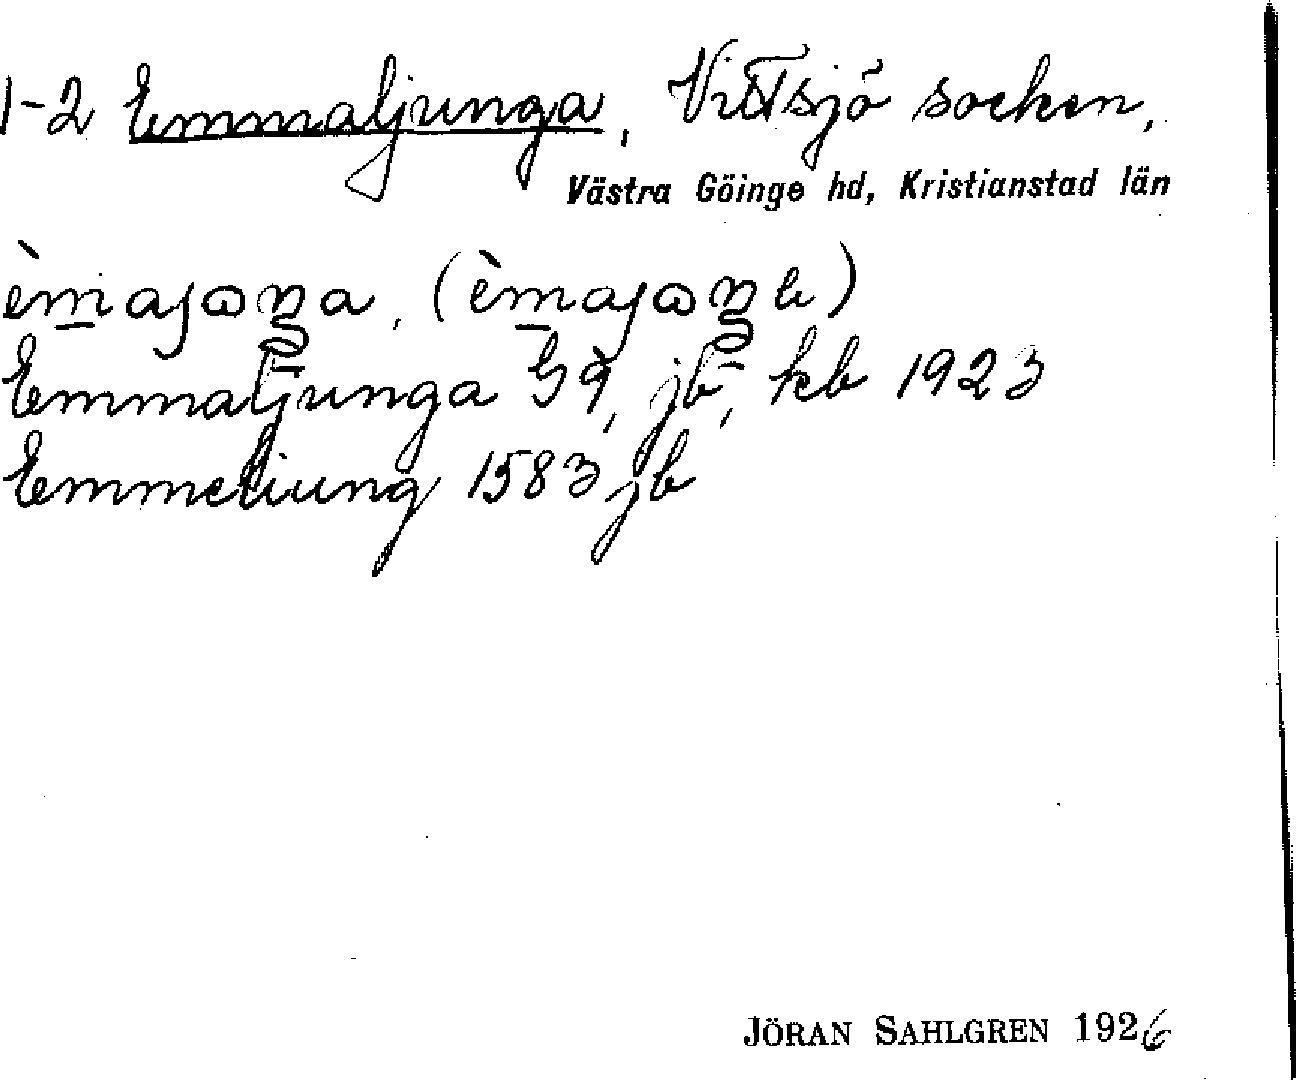 1-2 Emmaljunga, Vittsjö socken,
Västra Göinge hd, Kristianstad län
èmajωŋa, (èmajωŋ)
Emmaljunga G9, jb, kb 1923
Emmeliung 1583 jb
JÖRAN SAHLGREN 1926